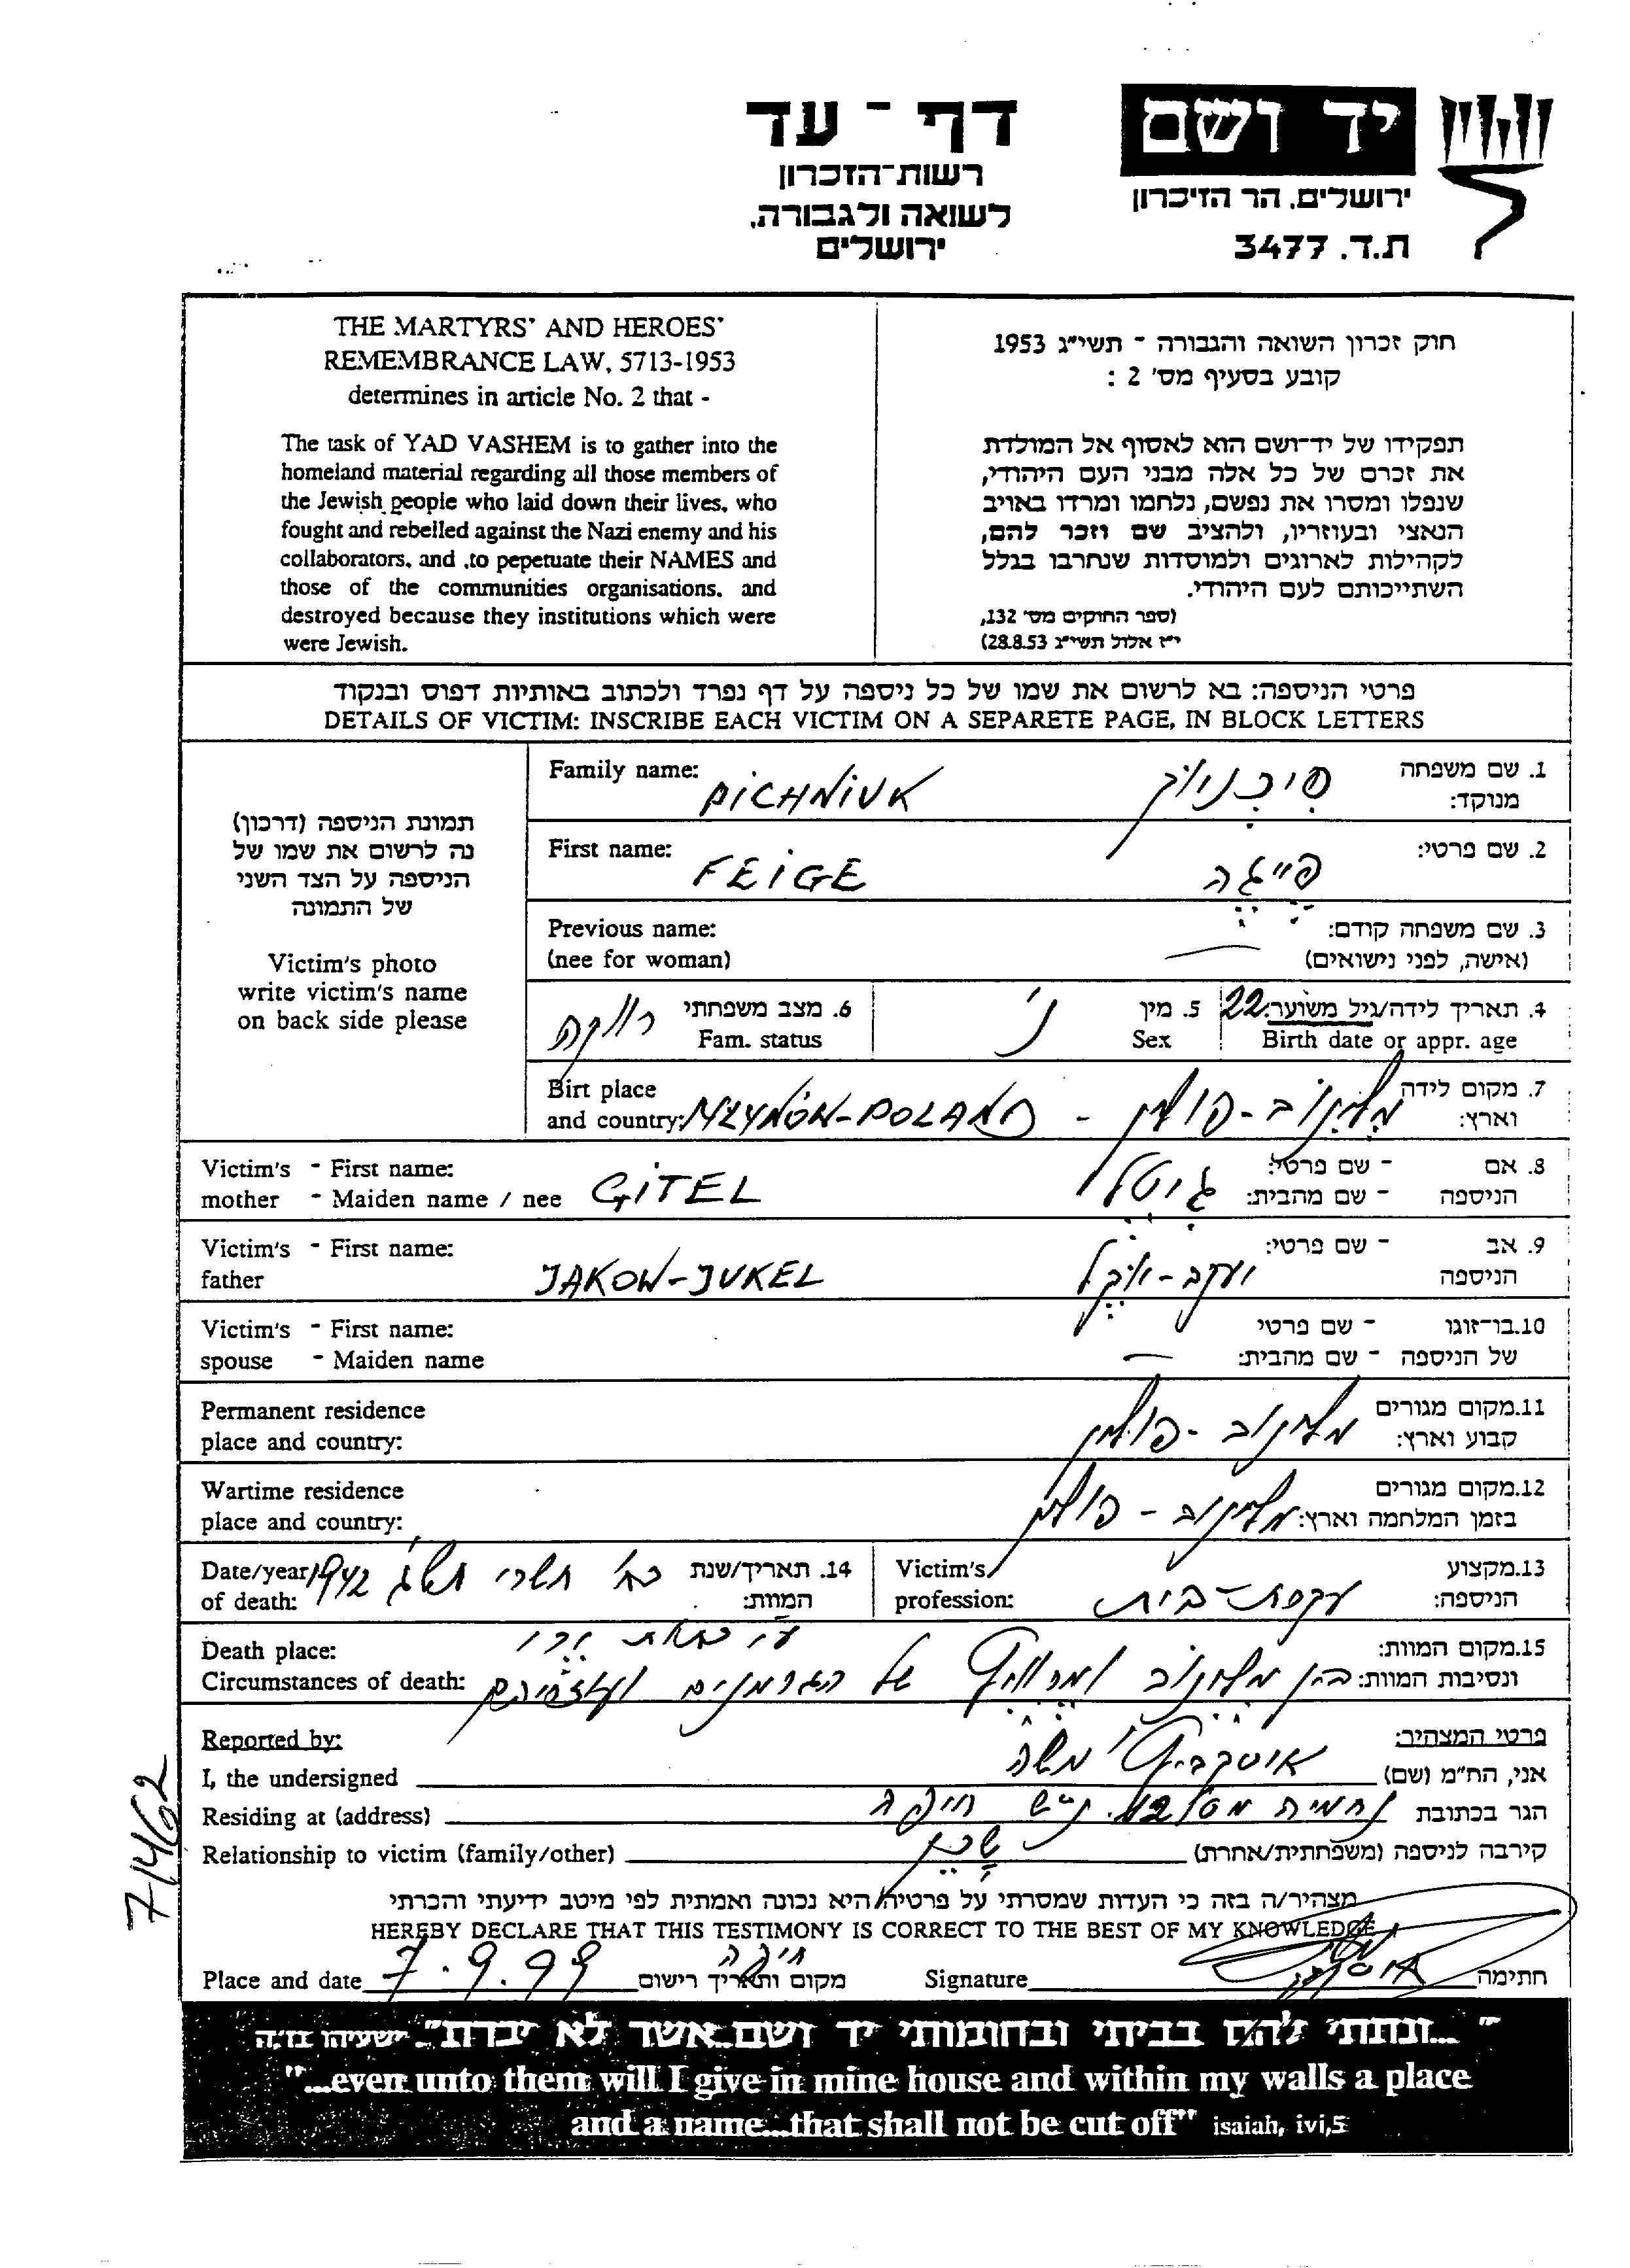 יד ושם
ירושלים, הר הזיכרון
ת.ד. 3477
דף-עד
רשות-הזכרון
לשואה ולגבורה,
ירושלים
THE MARTYRS' AND HEROES'
REMEMBRANCE LAW, 5713-1953
determines in article No. 2 that -
The task of YAD VASHEM is to gather into the
homeland material regarding all those members of
the Jewish people who laid down their lives, who
fought and rebelled against the Nazi enemy and his
collaborators, and .to pepetuate their NAMES and
those of the communities organisations, and
destroyed because they institutions which were
were Jewish.
חוק זכרון השואה והגבורה - תשי"ג 1953
קובע בסעיף מס' 2 :
תפקידו של יד-ושם הוא לאסוף אל המולדת
את זכרם של כל אלה מבני העם היהודי,
שנפלו ומסרו את נפשם, נלחמו ומרדו באויב
הנאצי ובעוזריו, ולהציב שם וזכר להם,
לקהילות לארוגים ולמוסדות שנחרבו בגלל
השתייכותם לעם היהודי.
(ספר החוקים מס' 132,
י"ז אלול תשי"ג 28.8.53)
פרטי הניספה: בא לרשום את שמו של כל ניספה על דף נפרד ולכתוב באותיות דפוס ובנקוד
DETAILS OF VICTIM: INSCRIBE EACH VICTIM ON A SEPARETE PAGE, IN BLOCK LETTERS
תמונת הניספה (דרכון)
נה לרשום את שמו של
הניספה על הצד השני
של התמונה
Victim's photo
write victim's name
on back side please
Family name: PICHNIUK פיכניוק 1. שם משפחה
מנוקד:
First name: FEIGE פייגה 2. שם פרטי:
Previous name: 3. שם משפחה קודם:
(nee for woman) — (אישה, לפני נישואים)
רווקה 6. מצב משפחתי נ' 5. מין 22 4. תאריך לידה/גיל משוער:
Fam. status Sex Birth date or appr. age
Birt place 7. מקום לידה
and country: MŁYNÓW-POLAND - מלינוב-פולין וארץ:
Victim's - First name: - שם פרטי: 8. אם
mother - Maiden name / nee GITEL גיטל - שם מהבית: הניספה
Victim's - First name: - שם פרטי: 9. אב
father JAKOW-JUKEL יעקב-יוקל הניספה
Victim's - First name: - שם פרטי 10.בן-זוגו
spouse - Maiden name — - שם מהבית: של הניספה
Permanent residence 11.מקום מגורים
place and country: מלינוב-פולין קבוע וארץ:
Wartime residence 12.מקום מגורים
place and country: מלינוב-פולין בזמן המלחמה וארץ:
Date/year 1942 כח' תשרי תש"ג 14. תאריך/שנת
of death: המוות:
Victim's 13.מקצוע
profession: עקרת-בית הניספה:
Death place: 15.מקום המוות:
Circumstances of death: בין מלינוב של הגרמנים ונסיבות המוות:
Reported by: פרטי המצהיר:
I, the undersigned משה אני, הח"מ (שם)
Residing at (address) חיפה הגר בכתובת
Relationship to victim (family/other) שכן קירבה לניספה (משפחתית/אחרת)
מצהיר/ה בזה כי העדות שמסרתי על פרטיה/היא נכונה ואמתית לפי מיטב ידיעתי והכרתי
HEREBY DECLARE THAT THIS TESTIMONY IS CORRECT TO THE BEST OF MY KNOWLEDGE
Place and date 7.9.99 חיפה מקום ותאריך רישום Signature חתימה
7/462
"...ונתתי להם בביתי ובחומותי יד ושם...אשר לא יכרת". ישעיהו נו,ה
"...even unto them will I give in mine house and within my walls a place
and a name...that shall not be cut off" isaiah, ivi,5